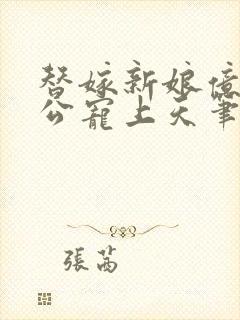 替嫁新娘億
公寵上天筆
張茜